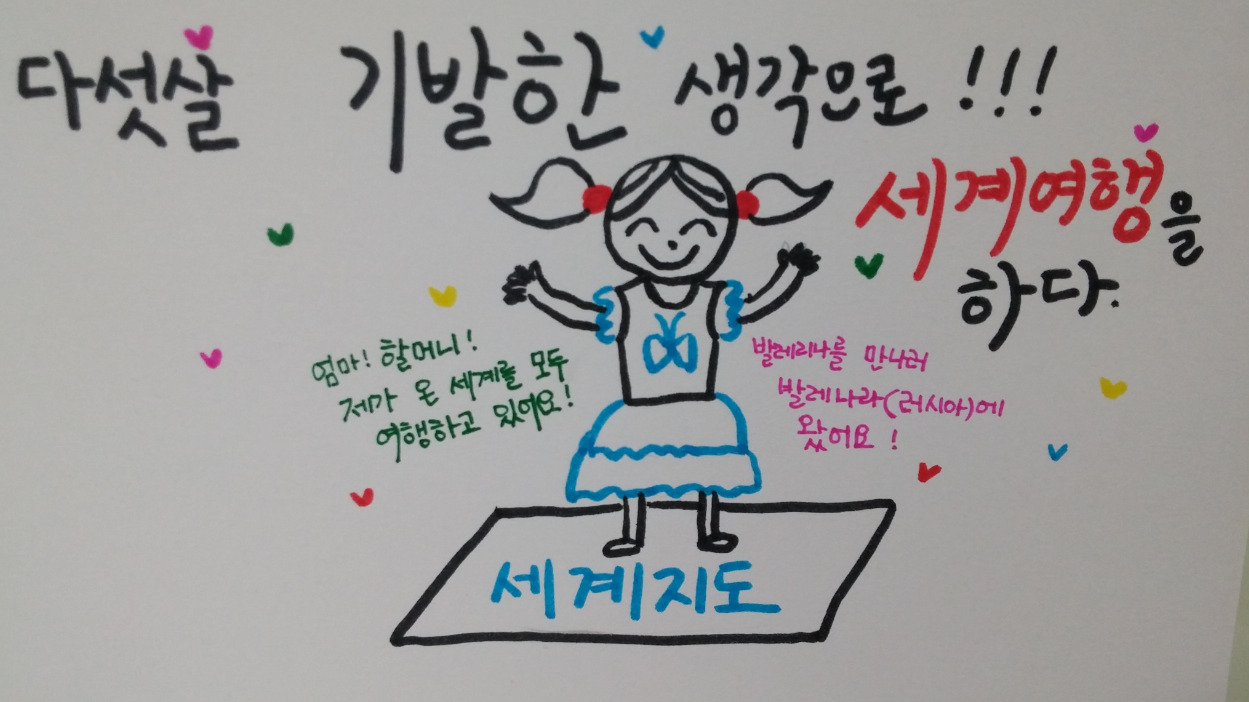 다섯살 기발한 생각으로!!!
세계여행을
하다.
엄마! 할머니!
제가 온 세계를 모두
여행하고 있어요!
발레리나를 만나러
발레나라(러시아)에
왔어요!
세계지도